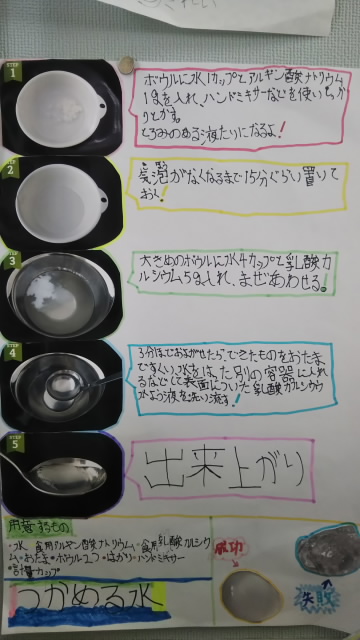 STEP 1
ボウルに水1カップとアルギン酸ナトリウム
1gを入れ、ハンドミキサーなどを使いしっか
りとかす。
とろみのある液たいになるよ!
STEP 2
気泡がなくなるまで15分ぐらい置いて
おく!
STEP 3
大きめのボウルに水4カップと乳酸カ
ルシウム5g入れ、まぜあわせる。
STEP 4
3分ほどおよがせたら、できたものをおたま
ですくい、水をはった別の容器に入れ
るなどして表面についた乳酸カルシウウ
水よう液を洗い流す!
STEP 5
出来上がり
用意するもの
・水 食用アルギン酸ナトリウム・食用乳酸カルシウ
ム・おたま・ボウル2つ・はかり・ハンドミキサー
・計量カップ
つかめる水
成功
失敗